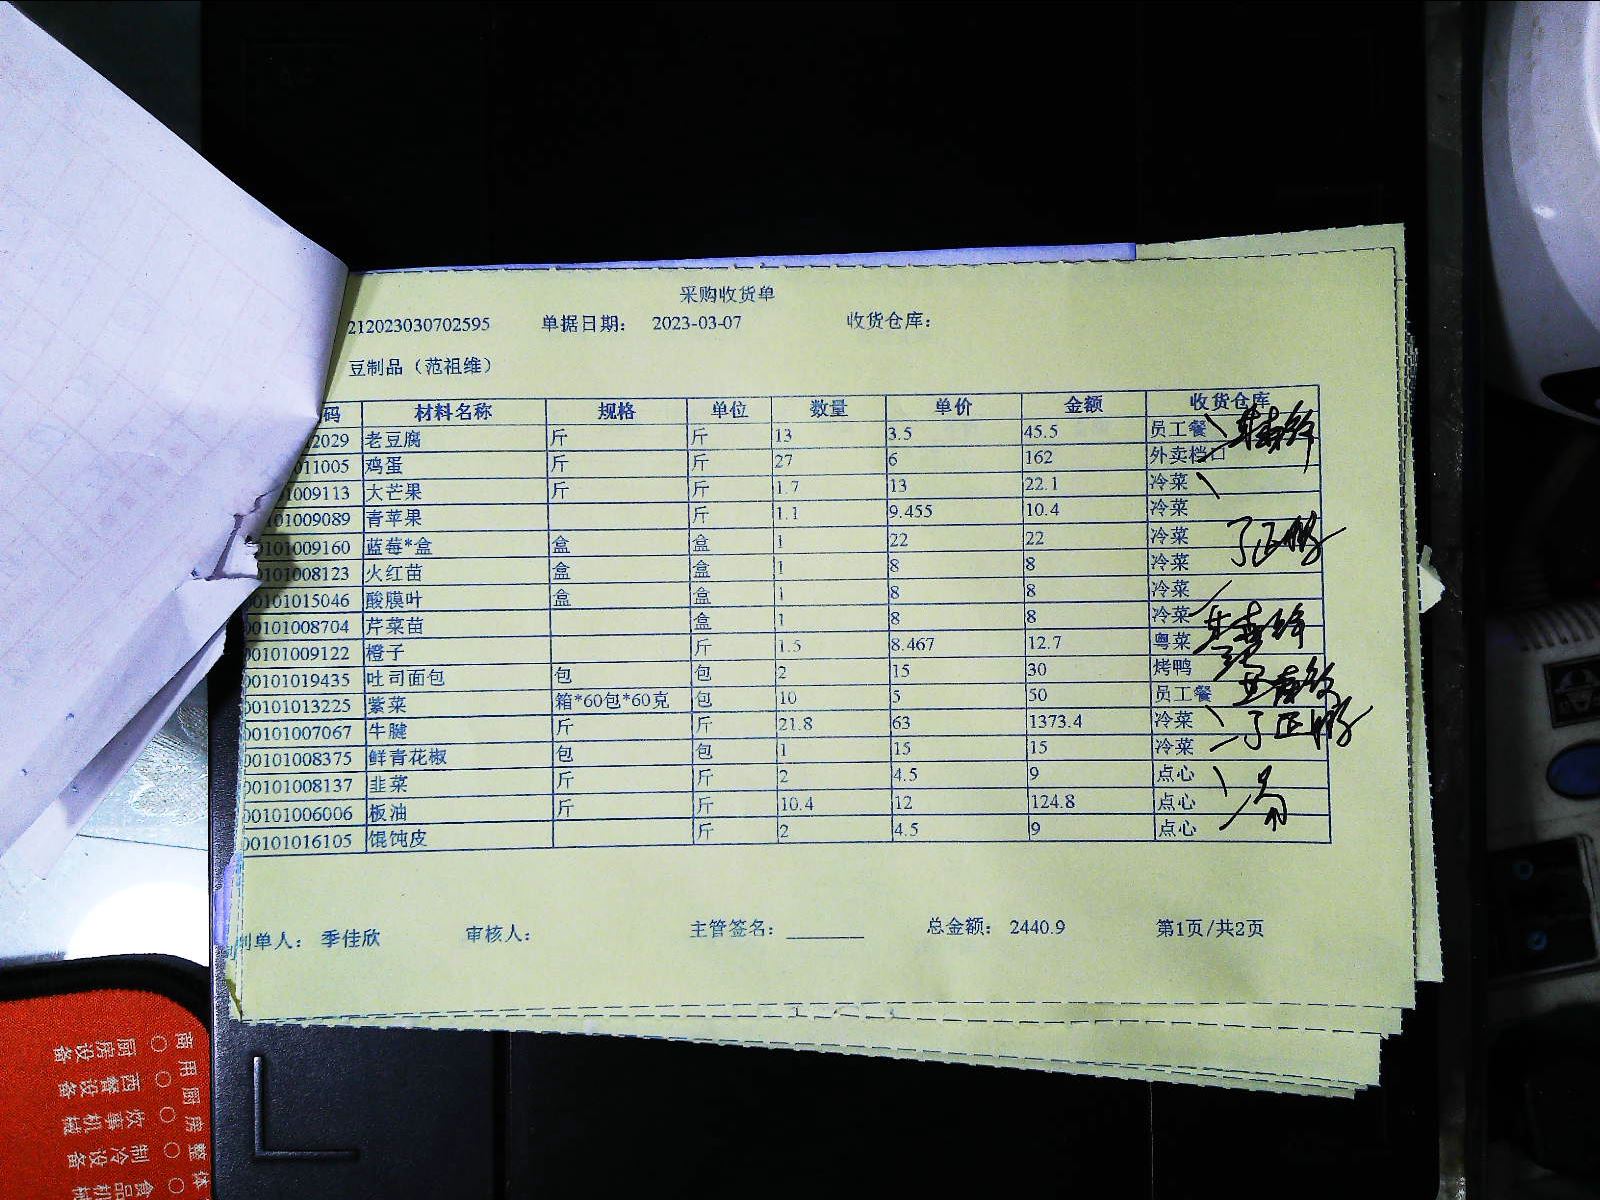 采购收货单
212023030702595 单据日期： 2023-03-07 收货仓库：
豆制品（范祖维）
码 材料名称 规格 单位 数量 单价 金额 收货仓库
2029 老豆腐 斤 斤 13 3.5 45.5 员工餐
011005 鸡蛋 斤 斤 27 6 162 外卖档口
01009113 大芒果 斤 斤 1.7 13 22.1 冷菜
0101009089 青苹果 斤 1.1 9.455 10.4 冷菜
0101009160 蓝莓*盒 盒 盒 1 22 22 冷菜
0101008123 火红苗 盒 盒 1 8 8 冷菜
00101015046 酸膜叶 盒 盒 1 8 8 冷菜
00101008704 芹菜苗 盒 1 8 8 冷菜
00101009122 橙子 斤 1.5 8.467 12.7 粤菜
00101019435 吐司面包 包 包 2 15 30 烤鸭
00101013225 紫菜 箱*60包*60克 包 10 5 50 员工餐
00101007067 牛腱 斤 斤 21.8 63 1373.4 冷菜
00101008375 鲜青花椒 包 包 1 15 15 冷菜
00101008137 韭菜 斤 斤 2 4.5 9 点心
00101006006 板油 斤 斤 10.4 12 124.8 点心
00101016105 馄饨皮 斤 2 4.5 9 点心
制单人： 季佳欣 审核人： 主管签名： 总金额： 2440.9 第1页/共2页
商用厨房整体
厨房设备
西餐设备
炊事机械
制冷设备
食品机械